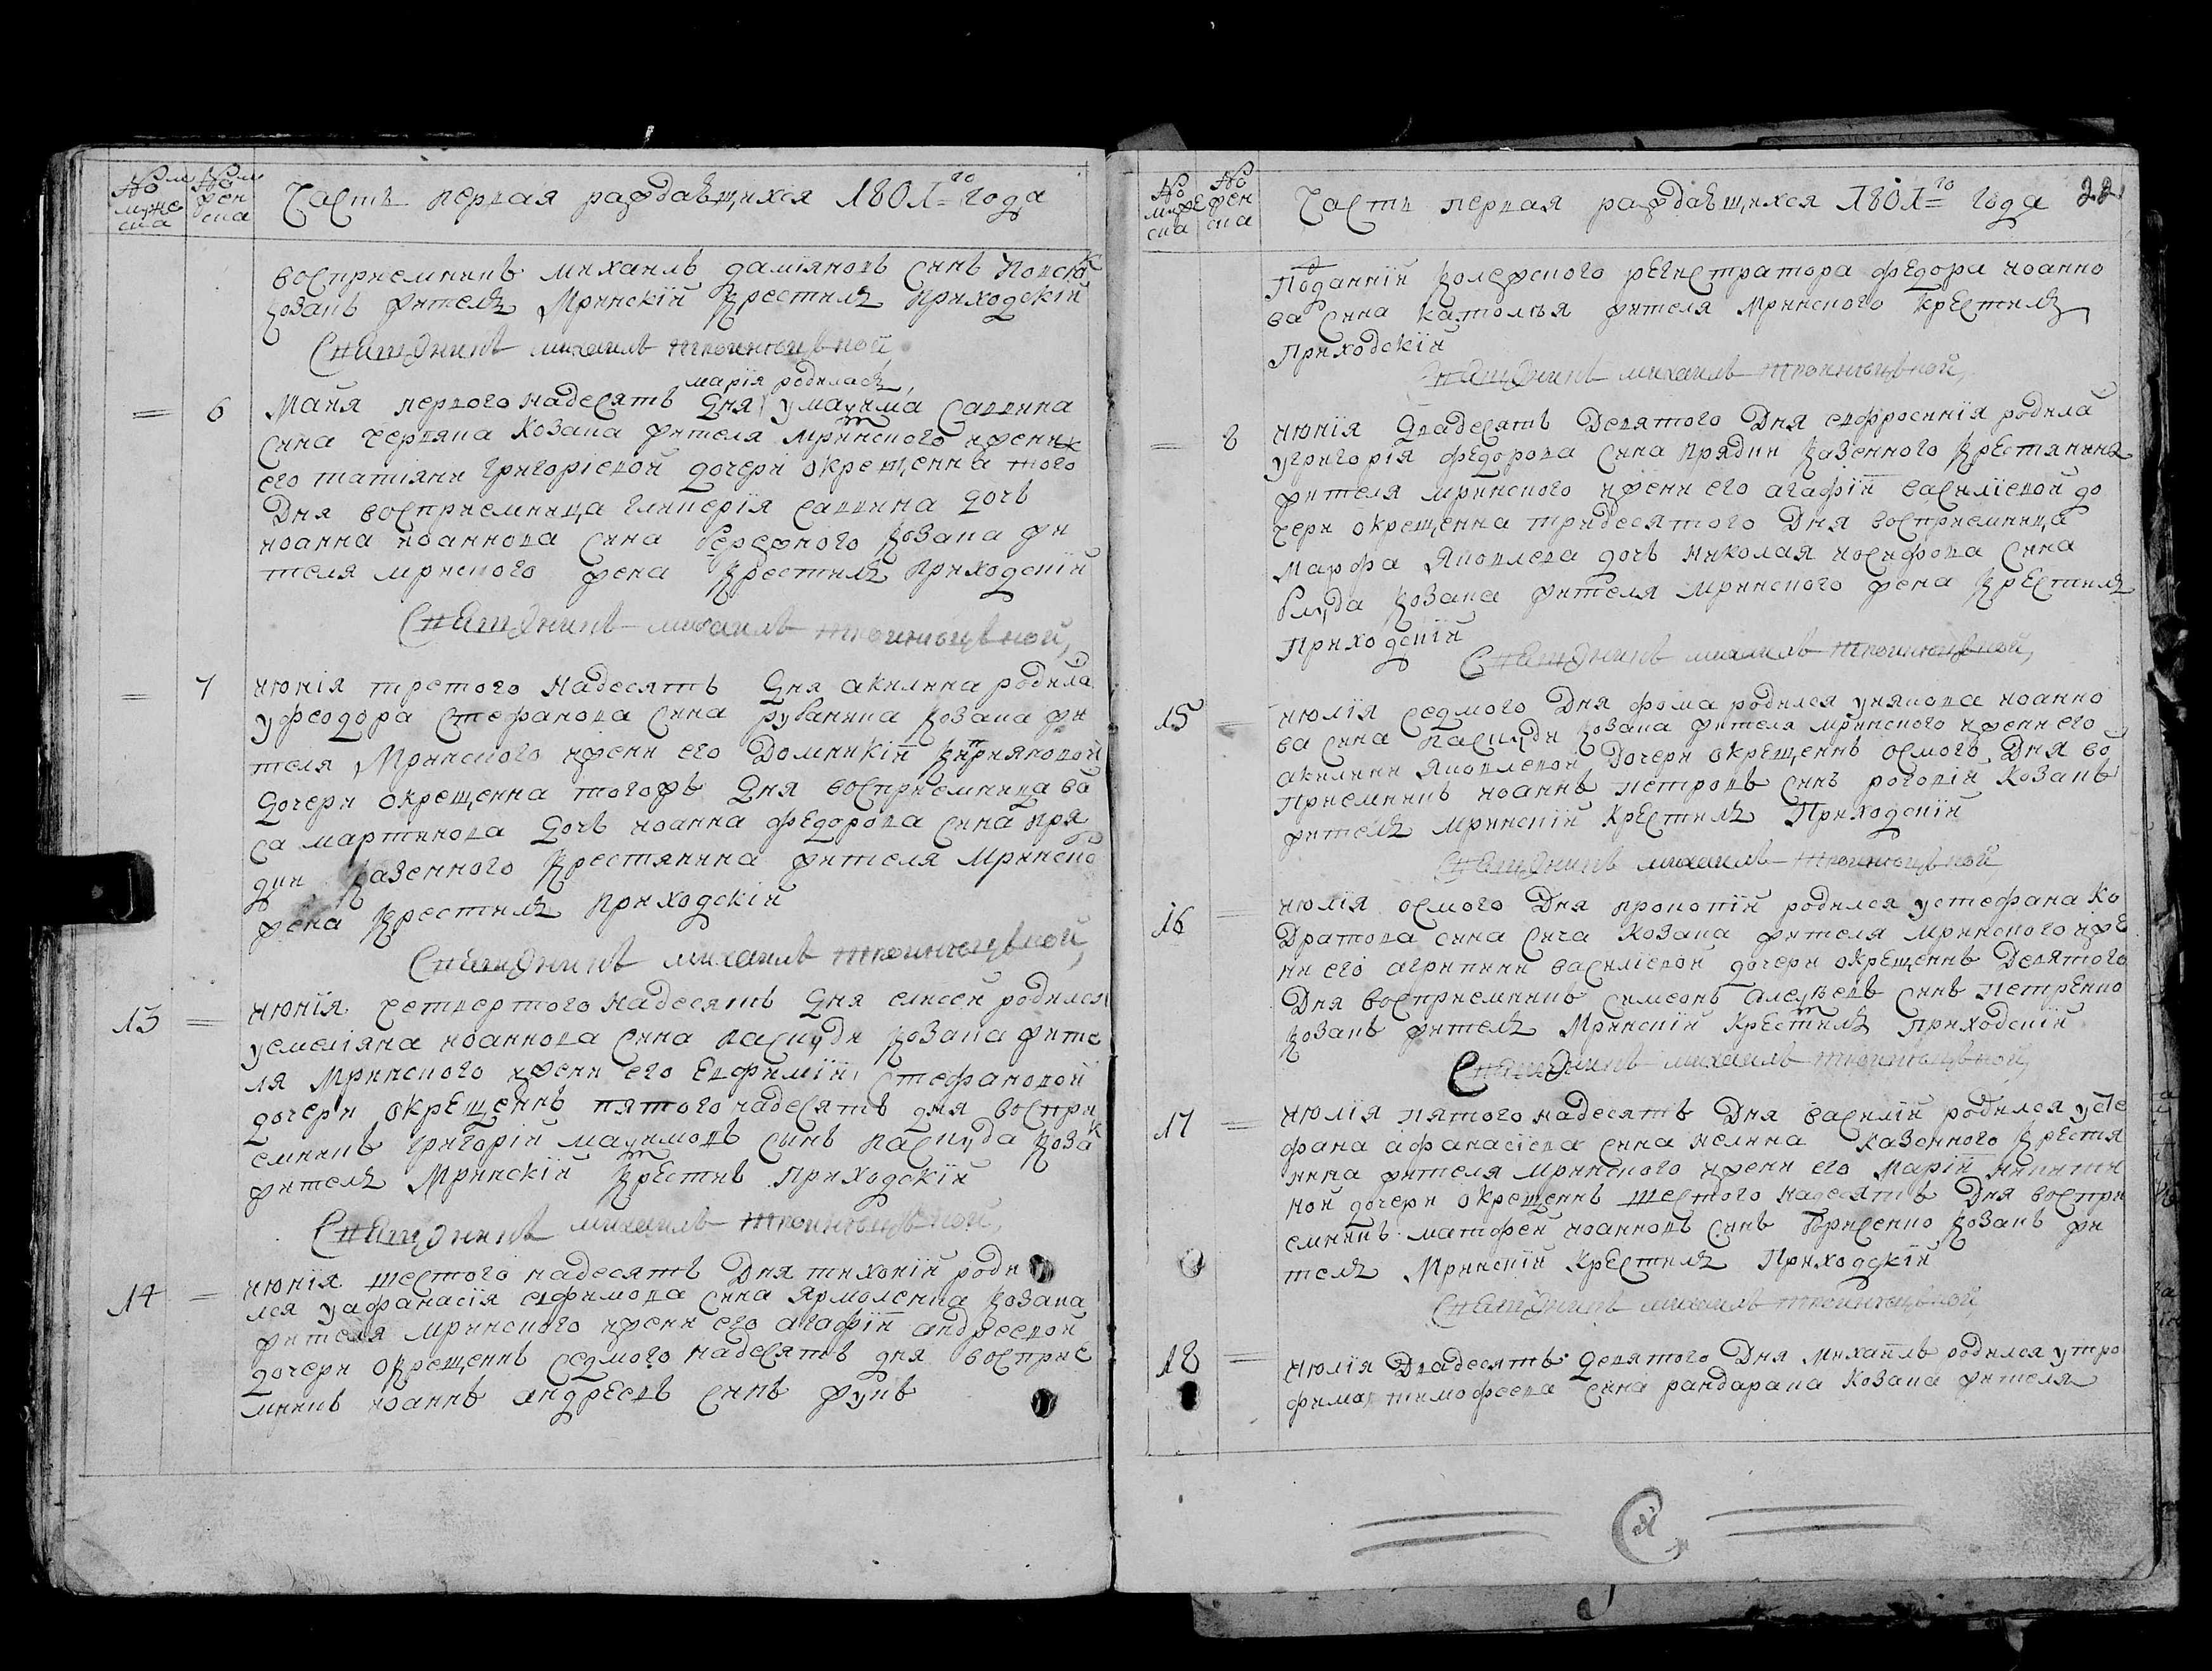 № мужеска
№ женска
Часть первая раждавщихся 1801го года
восприемникъ михаилъ даміяновъ синъ
козакъ жителъ Мринскій крестилъ приходскій
Священникъ михаилъ
6
марія родилась
Маия первого надесять дня умаѯима саввина
сина червяка козака жителя мринского ижени
его татіяни григоріевой дочери окрещенна того
дня восприемница гликерія саввина дочь
иоанна иоаннова сина бережного козака жи
теля мринского жена крестилъ приходскій
Священникъ михаилъ
7
июнія третого надесять дня акилина родила
уфеодора стефанова сина рубаника козака жи
теля Мринского ижени его Домникіи кирияковой
дочери окрещенна тогожъ дня восприемница ва
са мартинова дочь иоанна федорова сина пря
дки казенного крестянина жителя Мринско
жена крестилъ приходскій
Священникъ михаилъ
13
июнія четвертого надесять дня елисей родился
уемеліяна иоаннова сина паскуди козака жите
ля Мринского ижени его Евфиміи стефановой
дочери окрещеннъ пятого надесять дня воспри
емникъ григорій маѯимовъ сынъ паскуда козакъ
жителъ Мринскій крестилъ приходскій
Священникъ михаилъ
14
июнія шестого надесять дня тихоній роди
лся уафанасія евфимова сина ярмоленка козака
жителя мринского ижени его агафіи андреевой
дочери окрещеннъ седмого надесять дня восприе
мникъ иоаннъ андреевъ синъ жукъ
№ мужеска
№ женска
Часть первая раждавщихся 1801го года 22
Поданній колежского регистратора федора иоанно
ва сина католѣя жителя Мринского крестилъ
Приходскій
Священникъ михаилъ
8
июнія двадесять девятого дня евфросинія родила
угригорія федорова сина прядки казенного крестянина
жителя мринского ижени его агафіи василіевой до
чери окрещенна тридесятого дня восприемница
Марфа Яковлева дочь николая иосифова сина
козака жителя мринского жена крестилъ
Приходскій
Священникъ михаилъ
15
июлія седмого дня фома родился уиякова иоанно
ва сина паскуди козака жителя мринского ижени его
акилини Яковлевой дочери окрещеннъ осмого дня во
Приемникъ иоаннъ петровъ синъ рогодій козакъ
жителъ мринскій крестилъ Приходскій
Священникъ михаилъ
16
июлія осмого дня прокопій родился устефана ко
дратова сина сича козака жителя мринского иже
ни его агрипини василіевой дочери окрещеннъ девятого
дня восприемникъ симеонъ алеѯѣевъ синъ петренко
козакъ жителъ Мринскій крестилъ приходскій
Священникъ михаилъ
17
июлія пятого надесять дня василій родился усте
фана афанасіева сина нелина казенного крестя
нина жителя мринского ижени его маріи никити
ной дочери окрещеннъ шестого надесять дня воспри
емникъ матфей иоанновъ синъ борисенко козакъ жи
телъ Мринскій крестилъ Приходскій
Священникъ михаилъ
18
июлія двадесять девятого дня михаилъ родился утро
фима тимофеева сина рандарака козака жителя